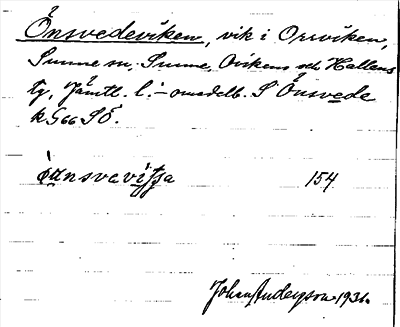 Önsvedeviken, vik i Orrviken,
Sunne sn, Sunne, Ovikens och Hallens
tg, Jämtl. l. :- omedelb. S Önsvede
k 566 SÖ.
154
Johan Anderson 1931.